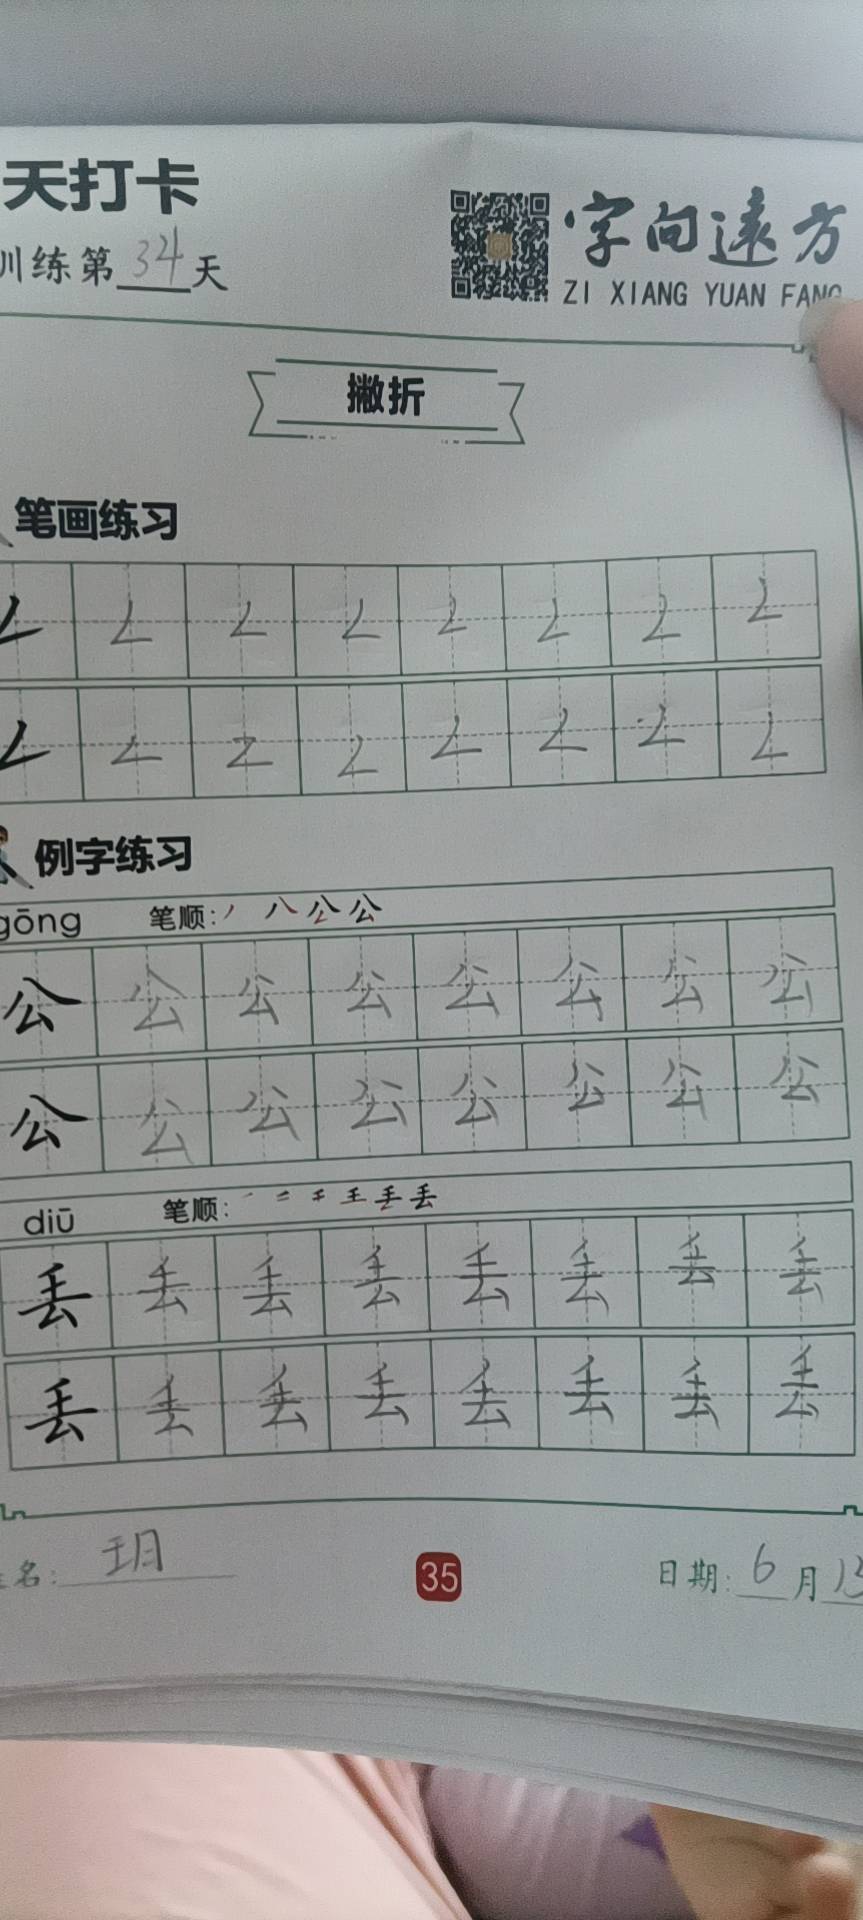 天打卡
训练第34天
字向遠方
ZI XIANG YUAN FANG
撇折
笔画练习
例字练习
gōng 笔顺: 丿 八 公 公
公 公 公 公 公 公 公 公
公 公 公 公 公 公 公 公
diū 笔顺:
丢 丢 丢 丢 丢 丢 丢 丢
丢 丢 丢 丢 丢 丢 丢 丢
姓名: 玥 35 日期: 6 月